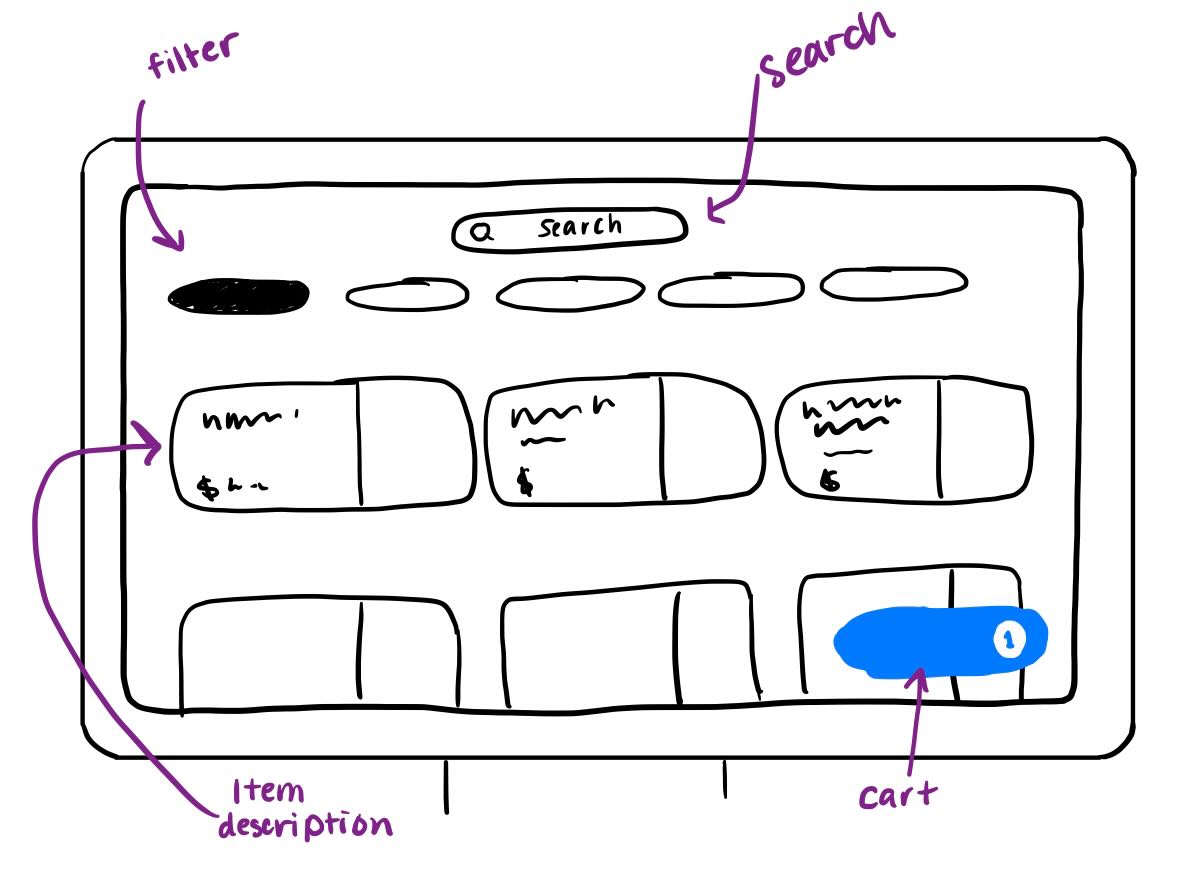 filter
search
search
$
$
$
1
Item
description
cart